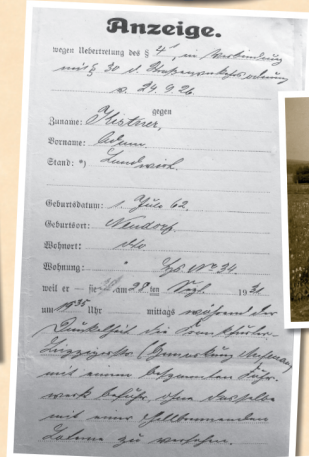 Anzeige.
wegen Uebertretung des § 4¹, in Verbindung
mit § 30 d. Straßenverkehrsordnung
v. 24.9.26
gegen
Zuname: Kistner,
Vorname: Adam.
Stand: *) Landwirt.
Geburtsdatum: 1. Jule 62.
Geburtsort: Neudorf.
Wohnort: dto.
Wohnung: " Hs. Nº 34.
weil er – sie am 28 ten Sept. 1931
um 19³⁵ Uhr mittags während der
Dunkelheit die Frankfurter-
Leipzigerstr. (Gemarkung
mit einem bespannten Fuhr-
werk befuhr, ohne dasselbe
mit einer hellbrennenden
Laterne zu versehen.